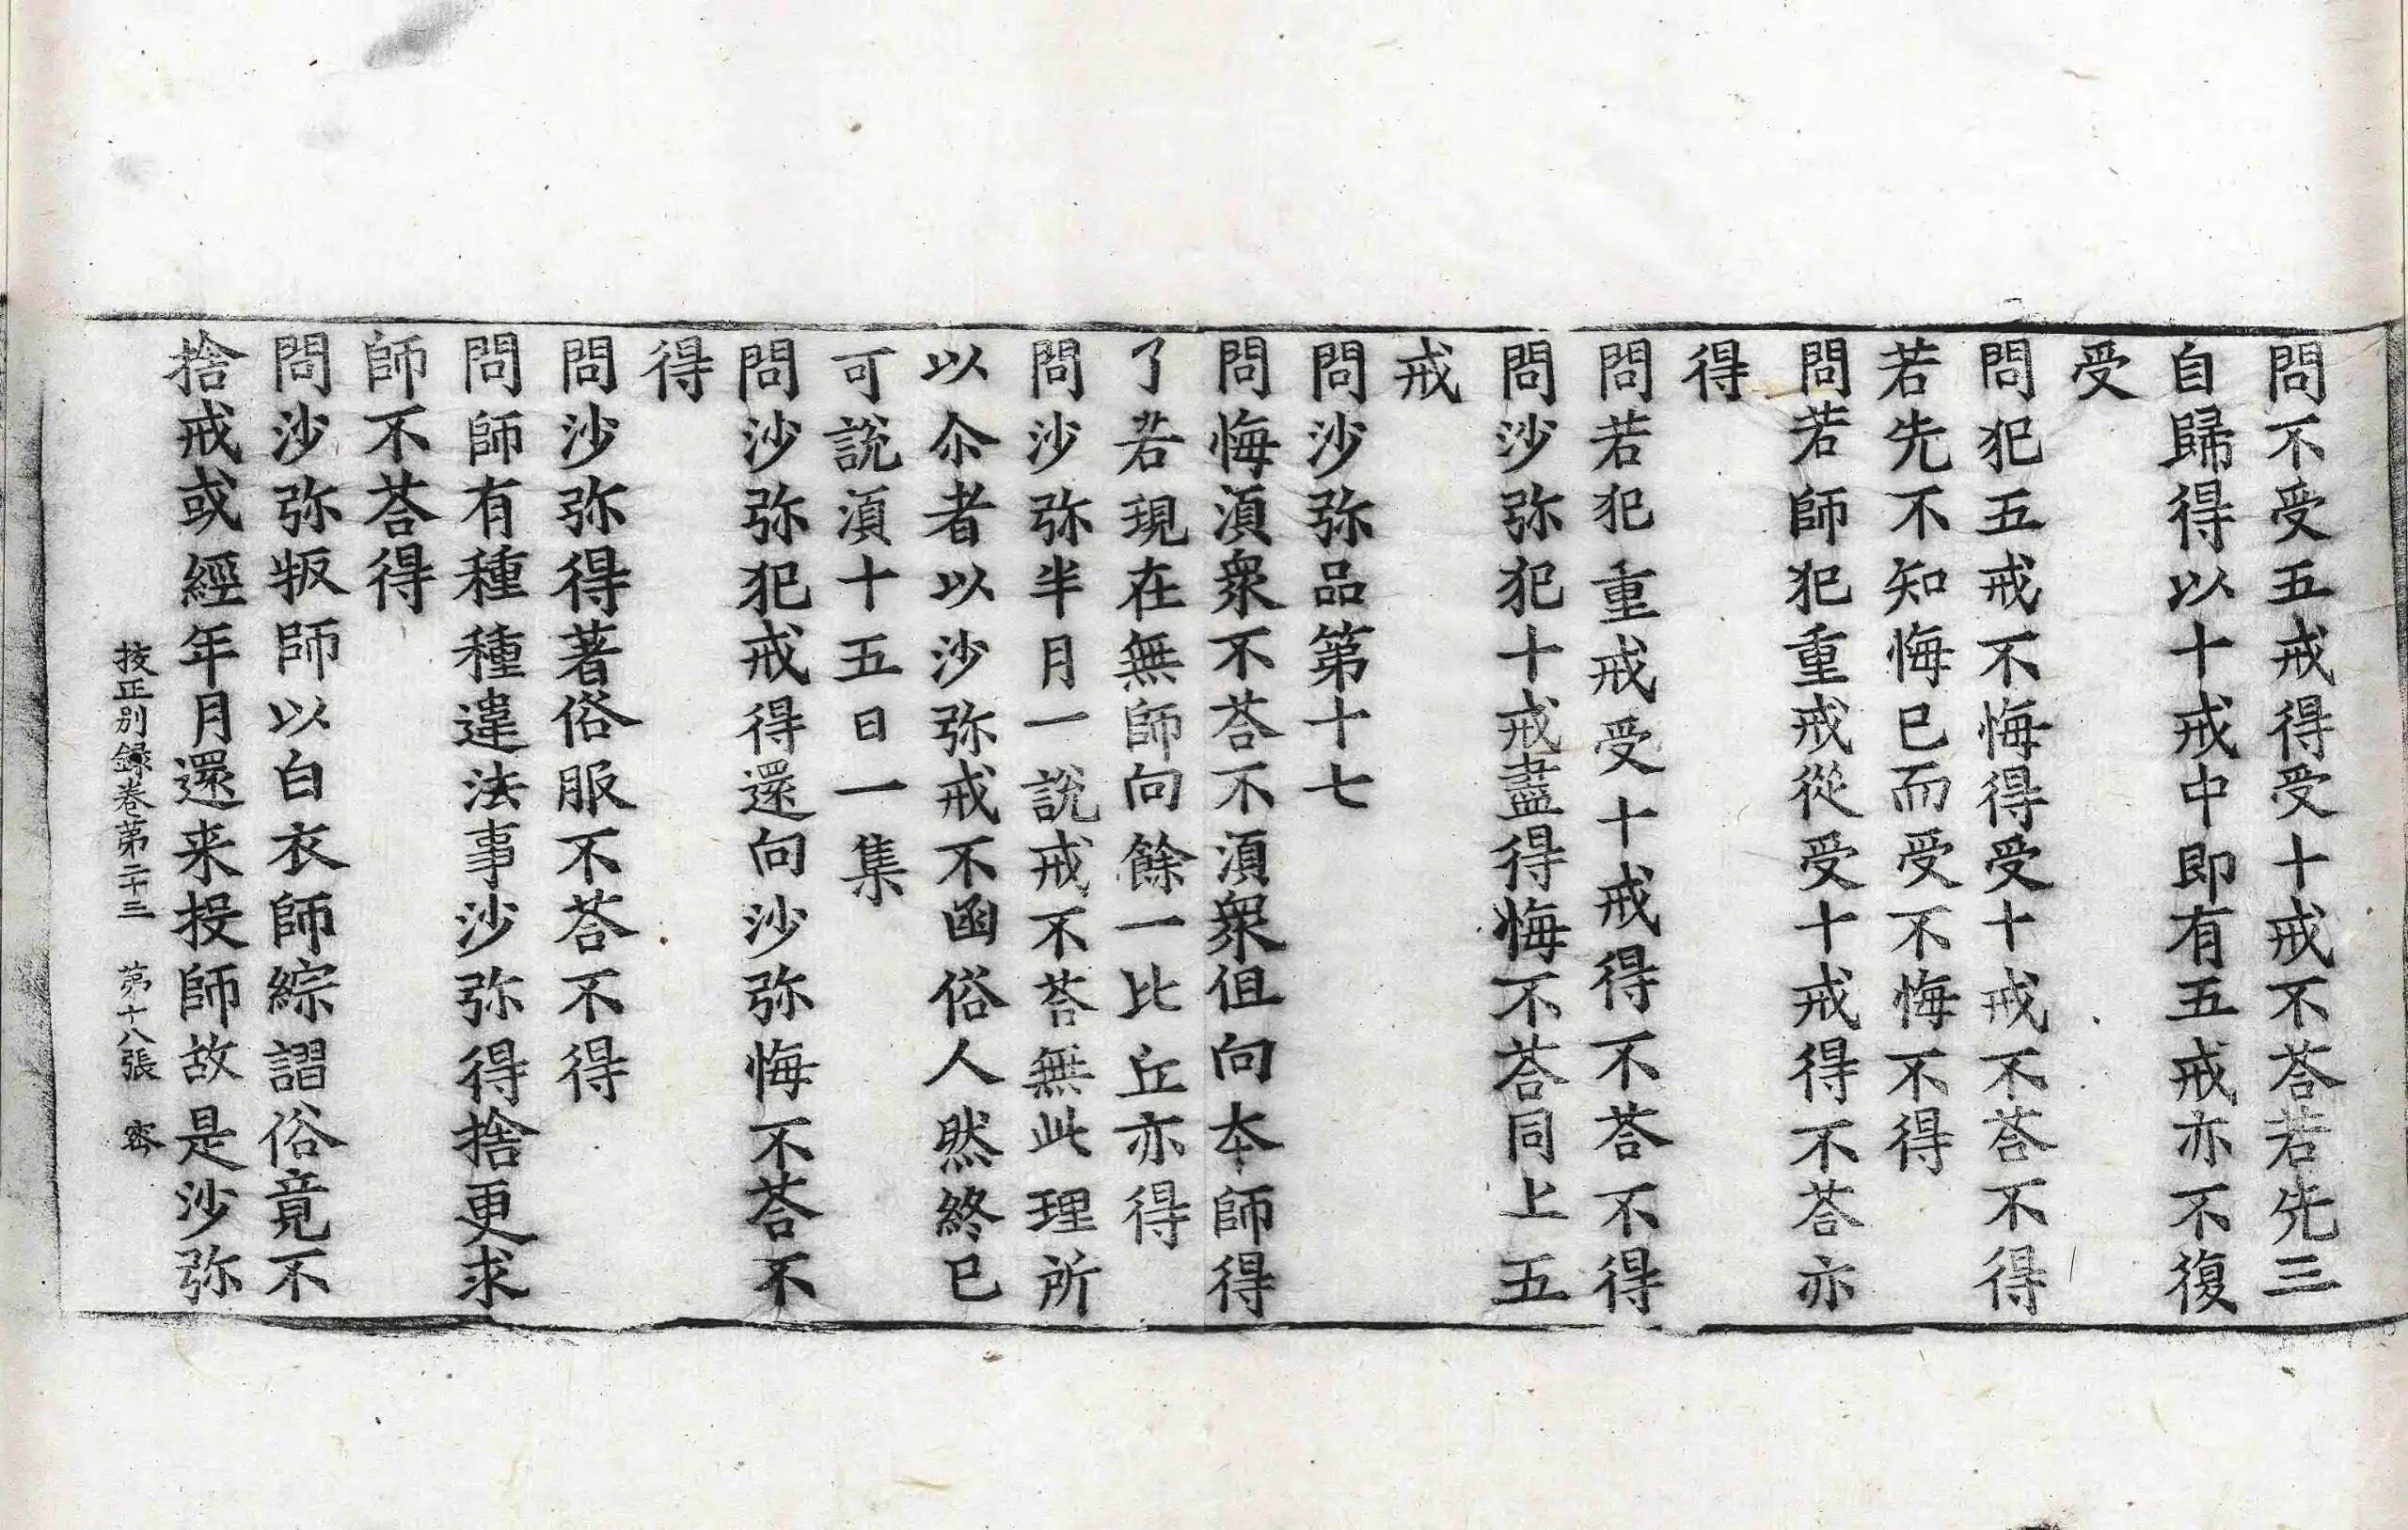 問不受五戒得受十戒不荅若先三
自歸得以十戒中即有五戒亦不復
受
問犯五戒不悔得受十戒不荅不得
若先不知悔已而受不悔不得
問若師犯重戒從受十戒得不荅亦
得
問若犯重戒受十戒得不荅不得
問沙弥犯十戒盡得悔不荅同上五
戒
問沙弥品第十七
問悔湏衆不荅不湏衆但向夲師得
了若現在無師向餘一比丘亦得
問沙弥半月一說戒不荅無此理所
以尒者以沙弥戒不函俗人然終已
可說湏十五日一集
問沙弥犯戒得還向沙弥悔不荅不
得
問沙弥得著俗服不荅不得
問師有種種違法事沙弥得捨更求
師不荅得
問沙弥叛師以白衣師綜謂俗竟不
捨戒或經年月還来投師故是沙弥
挍正別録卷第二十三 第十八張 密